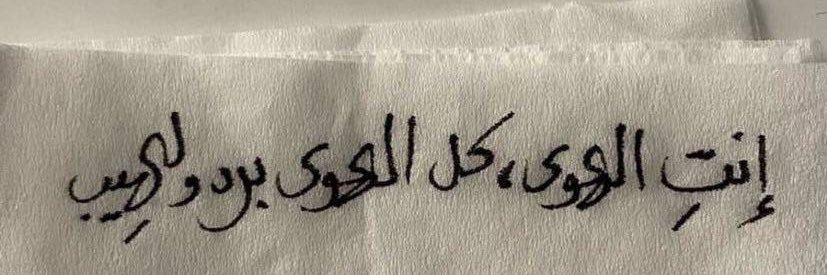 إنتِ الهوى، كل الهوى برد ولهيب